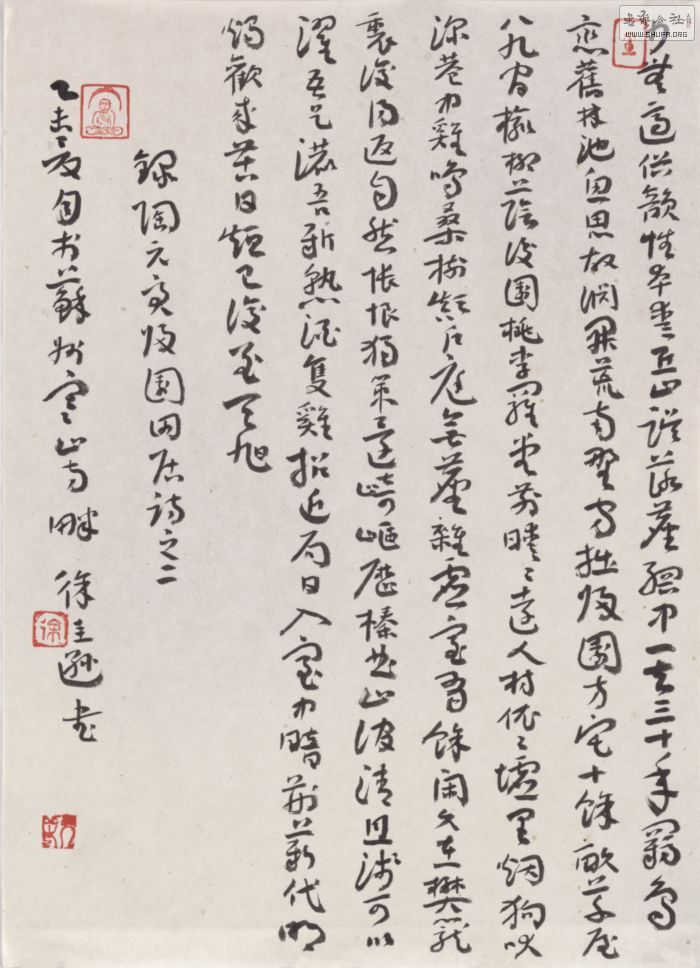 書藝公社
WWW.SHUFA.ORG
少無適俗韻性本愛丘山誤落塵網中一去三十年羈鳥
戀舊林池魚思故淵開荒南野守拙歸園方宅十餘畝草屋
八九間榆柳蔭後園桃李羅堂前曖々遠人村依々墟里烟狗吠
深巷中雞鳴桑樹顛戶庭無塵雜虛室有餘閑久在樊籠
裏復得返自然悵恨獨策還崎嶇歷榛曲山清且淺可以
濯吾足漉吾新熟酒隻雞招近局日入室中暗荊薪代明
燭歡來苦日短已復至天旭
錄陶元亮歸園田居詩之二
乙未夏月於蘇州寒山寺畔徐圭遜書
徐
圭